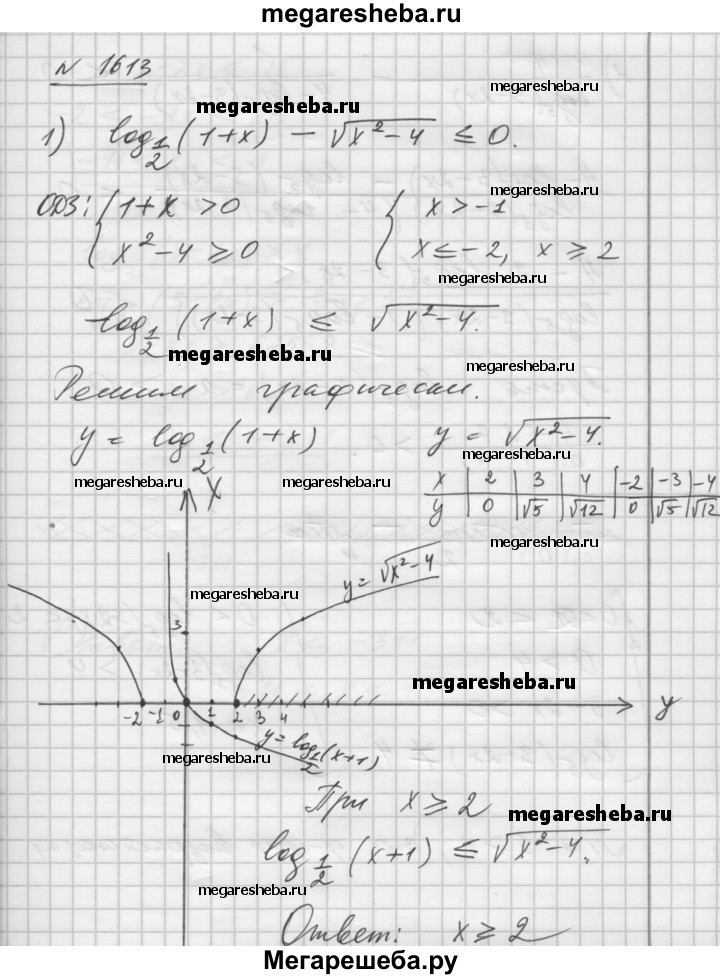 megaresheba.ru
N 1613
megaresheba.ru
megaresheba.ru
1) log_{1/2} (1+x) - √(x²-4) ≤ 0.
ОДЗ: { 1+x > 0 { x > -1
megaresheba.ru
{ x²-4 ≥ 0 { x ≤ -2, x ≥ 2
megaresheba.ru
log_{1/2} (1+x) ≤ √(x²-4).
megaresheba.ru
megaresheba.ru
Решим графически.
y = log_{1/2} (1+x) y = √(x²-4).
megaresheba.ru
x | 2 | 3 | 4 | -2 | -3 | -4
y | 0 | √5 | √12 | 0 | √5 | √12
megaresheba.ru
megaresheba.ru
X
megaresheba.ru
y = √(x²-4)
megaresheba.ru
3
megaresheba.ru
-2 -1 0 1 2 3 4 y
y = log_{1/2} (x+1)
megaresheba.ru
При x ≥ 2
megaresheba.ru
log_{1/2} (x+1) ≤ √(x²-4).
megaresheba.ru
megaresheba.ru
Ответ: x ≥ 2
Мегарешеба.ру